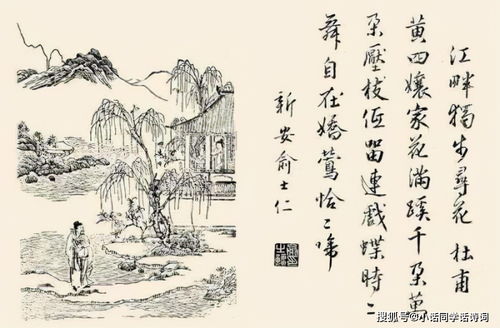 江畔獨步尋花 杜甫
黃四孃家花滿蹊千朵萬
朵壓枝低留連戲蝶時〻
舞自在嬌鶯恰〻啼
新安俞士仁
搜狐号@小话同学话诗词